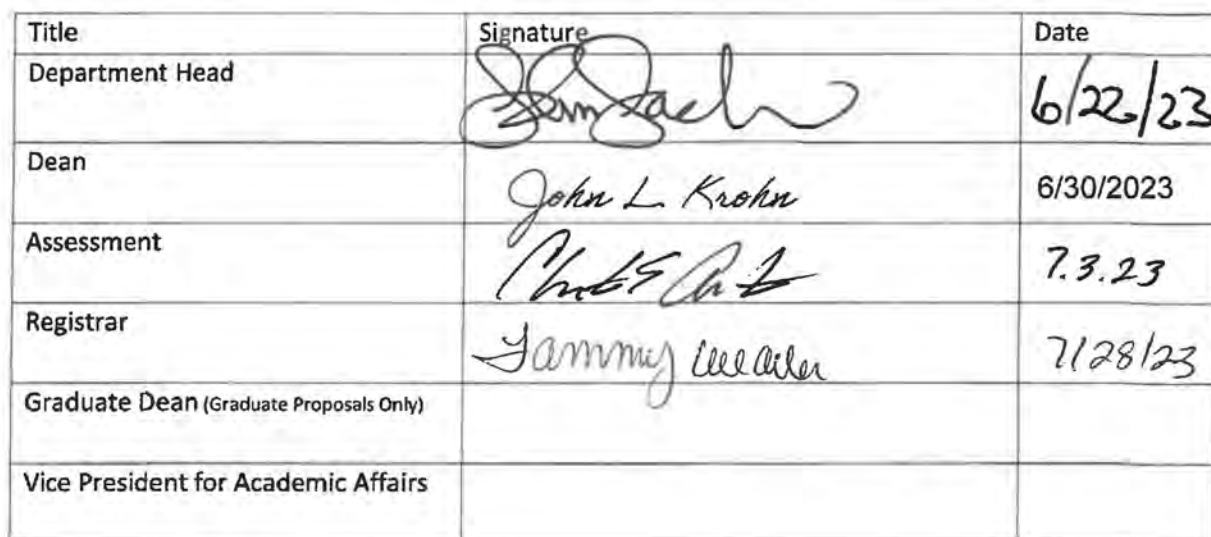 Title Signature Date
Department Head 6/22/23
Dean John L Krohn 6/30/2023
Assessment 7.3.23
Registrar Tammy 7/28/23
Graduate Dean (Graduate Proposals Only)
Vice President for Academic Affairs